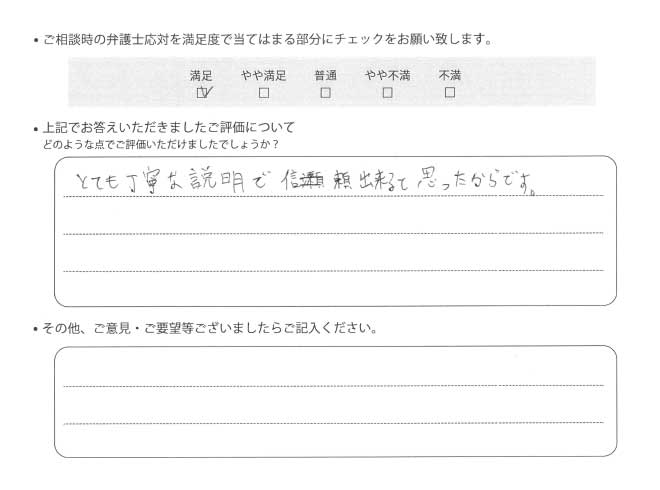 • ご相談時の弁護士応対を満足度で当てはまる部分にチェックをお願い致します。
満足 やや満足 普通 やや不満 不満
☑ □ □ □ □
• 上記でお答えいただきましたご評価について
どのような点でご評価いただけましたでしょうか？
とても丁寧な説明で信頼出来ると思ったからです。
• その他、ご意見・ご要望等ございましたらご記入ください。